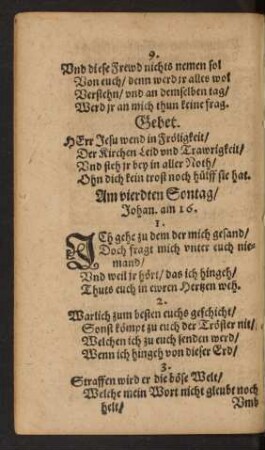 9.
Vnd diese Frewd nichts nemen sol
Von euch/ denn werd jr alles wol
Verstehn/ vnd an demselben tag/
Werd jr an mich thun keine frag.
Gebet.
HErr Jesu wend in Fröligkeit/
Der Kirchen Leid vnd Trawrigkeit/
Vnd sieh jr bey in aller Noth/
Ohn dich kein trost noch hülff sie hat.
Am vierdten Sontag/
Johan. am 16.
1.
ICh gehe zu dem der mich gesand/
Doch fragt mich vnter euch nie-
mand/
Vnd weil jr hört/ das ich hingeh/
Thuts euch in ewren Hertzen weh.
2.
Warlich zum besten euchs geschicht/
Sonst kömpt zu euch der Tröster nit/
Welchen ich zu euch senden werd/
Wenn ich hingeh von dieser Erd/
3.
Straffen wird er die böse Welt/
Welche mein Wort nicht gleubt noch
helt/
Vmb